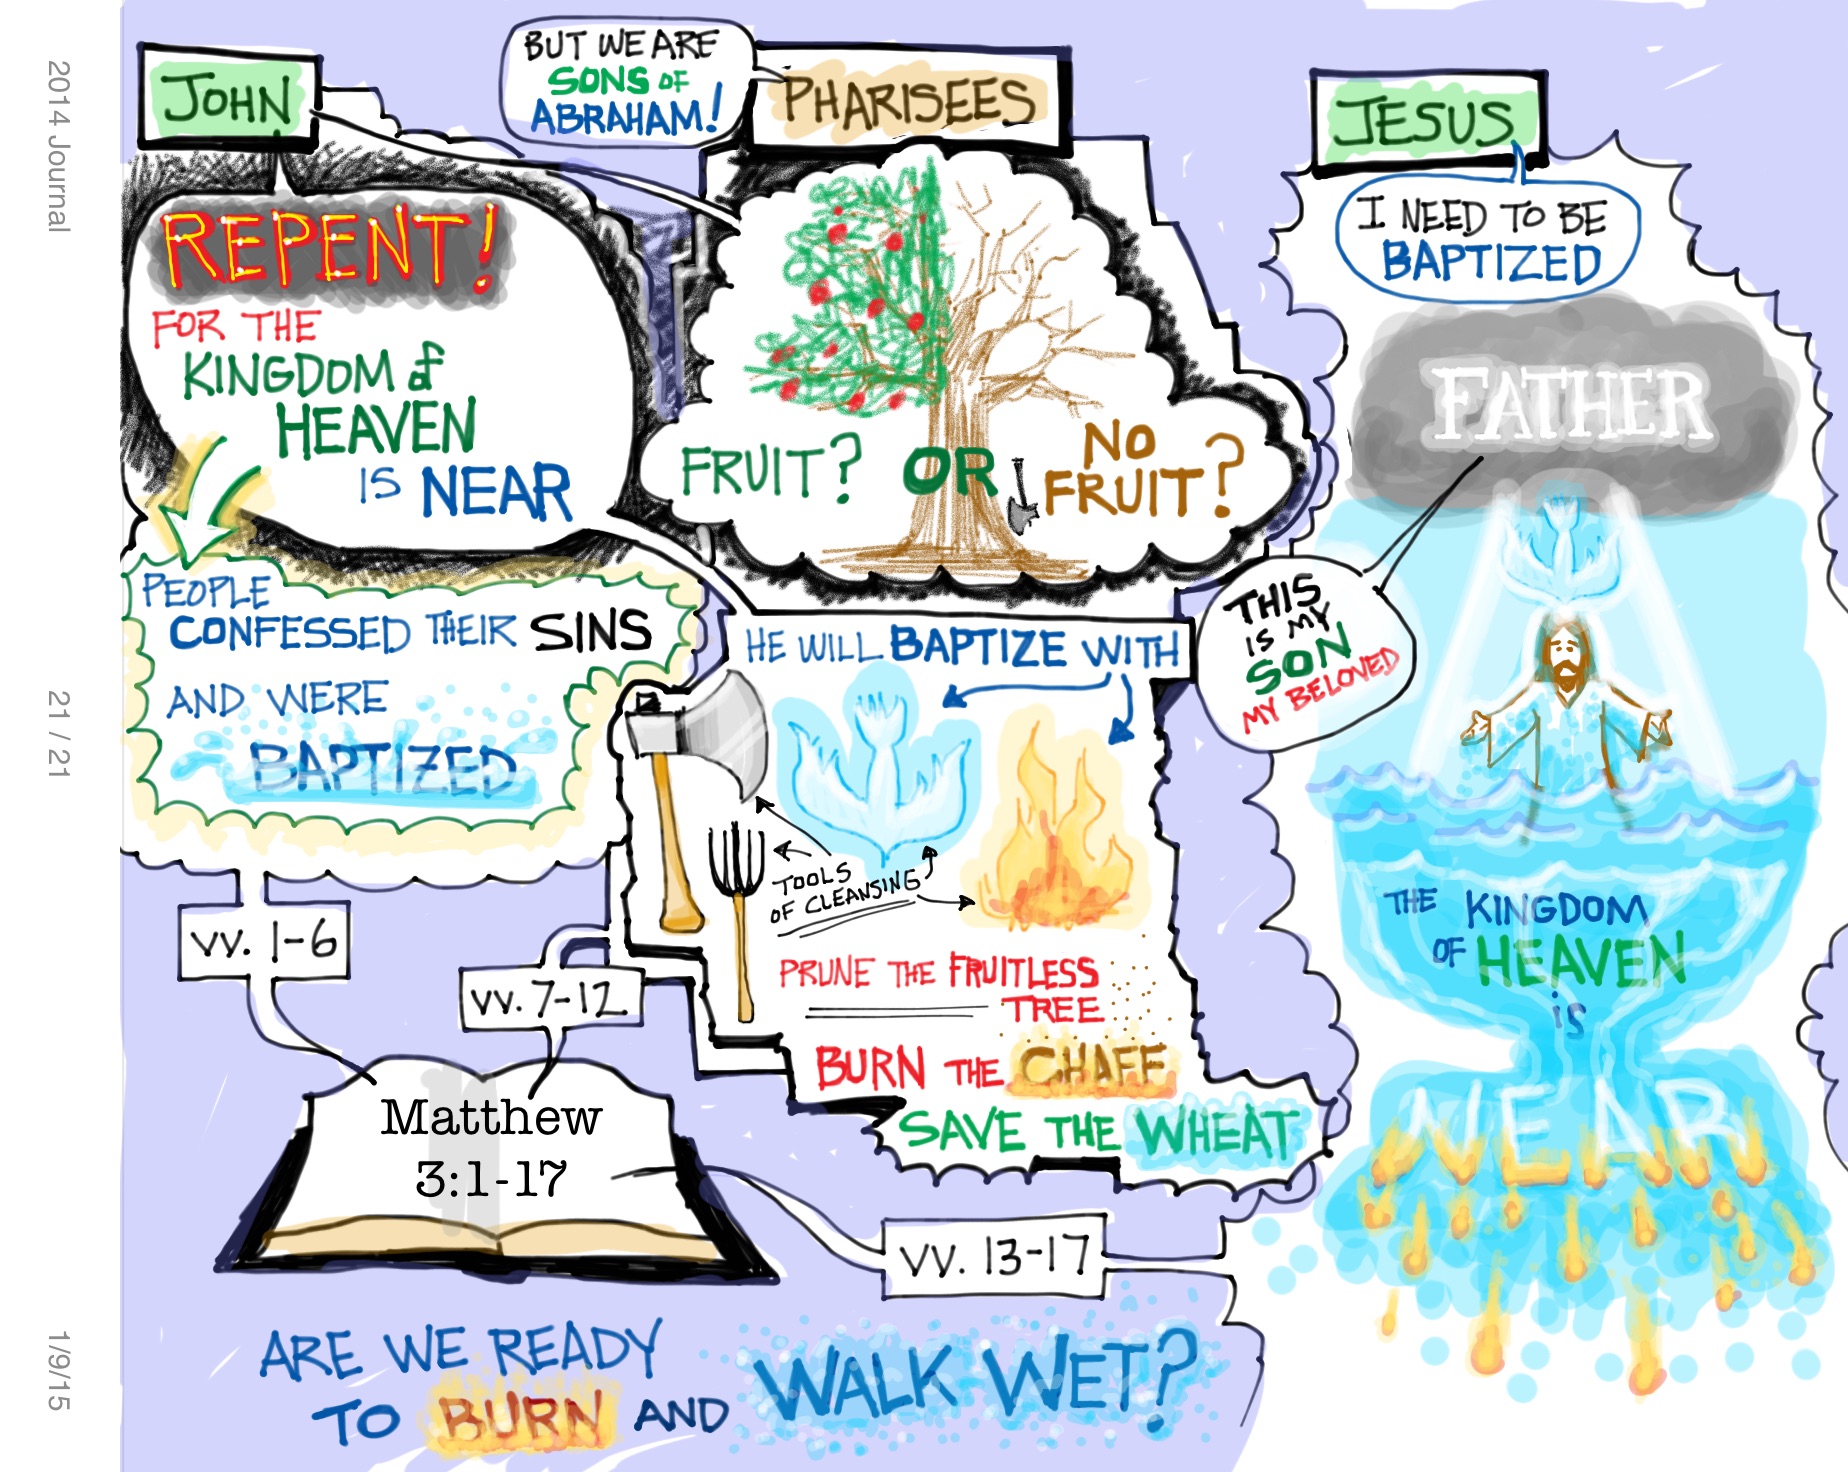 2014 Journal
21 / 21
1/9/15
JOHN
REPENT!
FOR THE
KINGDOM of
HEAVEN
IS NEAR
PEOPLE
CONFESSED THEIR SINS
AND WERE
BAPTIZED
vv. 1-6
BUT WE ARE
SONS OF
ABRAHAM!
PHARISEES
FRUIT? OR NO
FRUIT?
HE WILL BAPTIZE WITH
TOOLS
OF CLEANSING
PRUNE THE FRUITLESS
TREE
BURN THE CHAFF
SAVE THE WHEAT
vv. 7-12
Matthew
3:1-17
vv. 13-17
JESUS
I NEED TO BE
BAPTIZED
FATHER
THIS
IS MY
SON
MY BELOVED
THE KINGDOM
OF HEAVEN
is
NEAR
ARE WE READY
TO BURN AND
WALK WET?